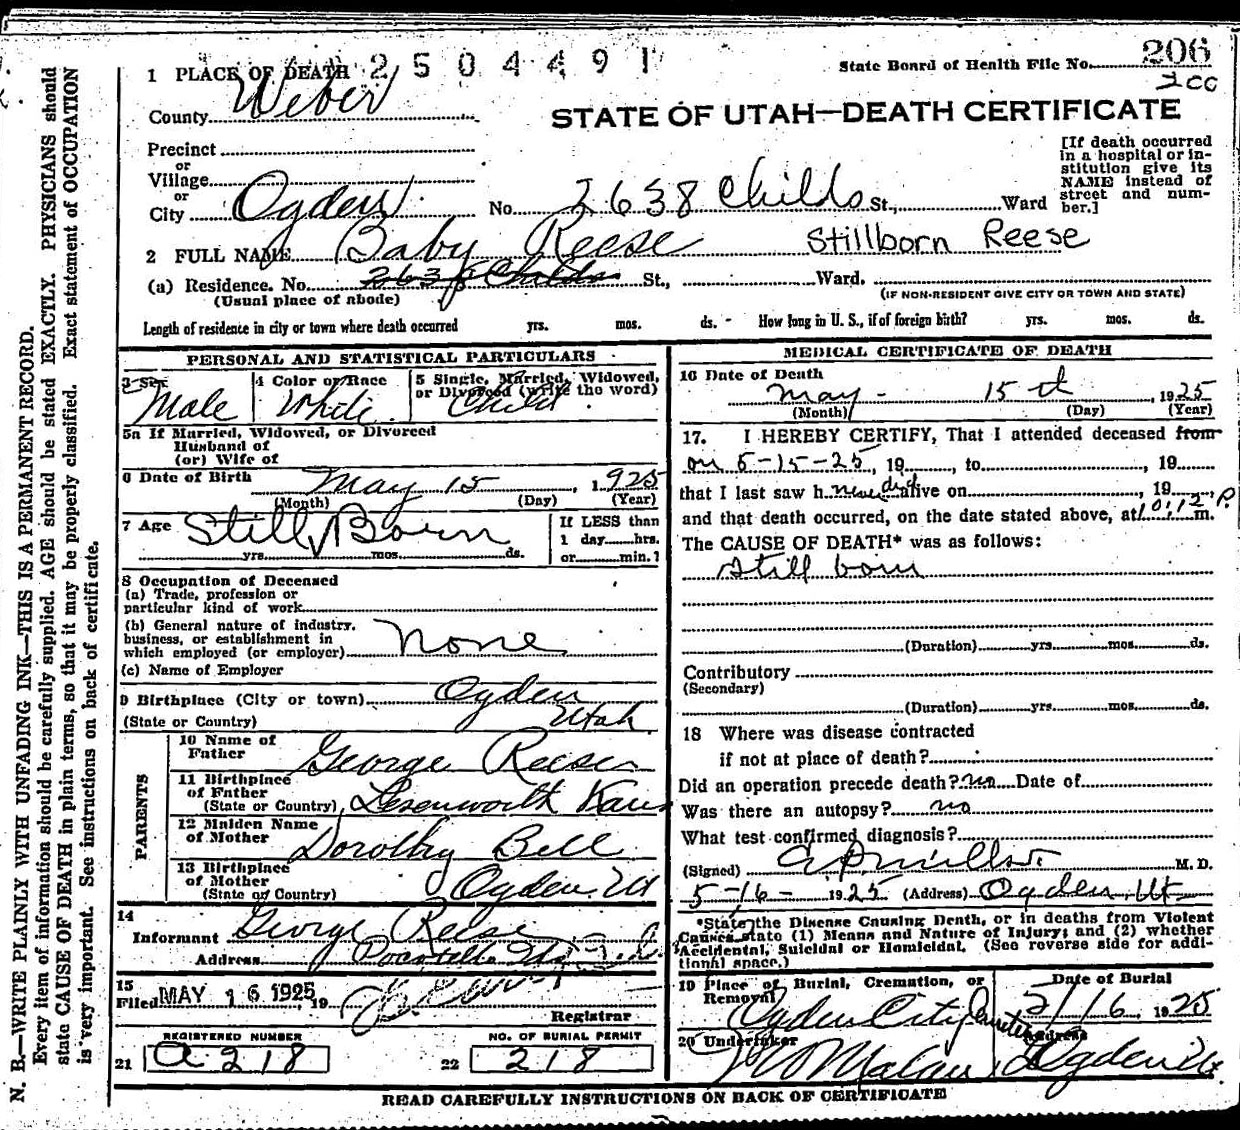 2504491
State Board of Health File No. 206
200
1 PLACE OF DEATH
County Weber
STATE OF UTAH—DEATH CERTIFICATE
Precinct
or
Village
or
City Ogden No. 2638 Childs St., Ward
[If death occurred
in a hospital or in-
stitution give its
NAME instead of
street and num-
ber.]
2 FULL NAME Baby Reese Stillborn Reese
(a) Residence. No. 2638 Childs St., Ward.
(Usual place of abode) (IF NON-RESIDENT GIVE CITY OR TOWN AND STATE)
Length of residence in city or town where death occurred yrs. mos. ds. - How long in U. S., if of foreign birth? yrs. mos. ds.
PERSONAL AND STATISTICAL PARTICULARS
3 Sex Male
4 Color or Race White
5 Single, Married, Widowed,
or Divorced (write the word) Child
5a If Married, Widowed, or Divorced
Husband of
(or) Wife of
6 Date of Birth May 15, 1925
(Month) (Day) (Year)
7 Age Still Born
yrs. mos. ds.
If LESS than
1 day hrs.
or min.?
8 Occupation of Deceased
(a) Trade, profession or
particular kind of work
(b) General nature of industry,
business, or establishment in
which employed (or employer) None
(c) Name of Employer
9 Birthplace (City or town) Ogden
(State or Country) Utah
PARENTS
10 Name of
Father George Reese
11 Birthplace
of Father
(State or Country) Kans
12 Maiden Name
of Mother Dorothy Bell
13 Birthplace
of Mother
(State or Country) Ogden Ut
14
Informant George Reese
Address Pocatello
15
Filed MAY 16 1925, 19
Registrar
REGISTERED NUMBER
21 a 218
NO. OF BURIAL PERMIT
22 218
MEDICAL CERTIFICATE OF DEATH
16 Date of Death
May - 15th, 1925
(Month) (Day) (Year)
17. I HEREBY CERTIFY, That I attended deceased from
on 5-15-25, 19, to, 19
that I last saw h never did alive on, 19,
and that death occurred, on the date stated above, at 10:12 P.m.
The CAUSE OF DEATH* was as follows:
Still born
(Duration) yrs. mos. ds.
Contributory
(Secondary)
(Duration) yrs. mos. ds.
18 Where was disease contracted
if not at place of death?
Did an operation precede death? no Date of
Was there an autopsy? no
What test confirmed diagnosis?
(Signed) M. D.
5-16-1925 (Address) Ogden, Ut
*State the Disease Causing Death, or in deaths from Violent
Causes state (1) Means and Nature of Injury; and (2) whether
Accidental, Suicidal or Homicidal. (See reverse side for addi-
tional space.)
19 Place of Burial, Cremation, or
Removal Ogden City Cemetery
Date of Burial
5/16 1925
20 Undertaker
Address
Ogden Ut
READ CAREFULLY INSTRUCTIONS ON BACK OF CERTIFICATE
N. B.—WRITE PLAINLY WITH UNFADING INK—THIS IS A PERMANENT RECORD.
Every item of information should be carefully supplied. AGE should be stated EXACTLY. PHYSICIANS should
state CAUSE OF DEATH in plain terms, so that it may be properly classified. Exact statement of OCCUPATION
is very important. See instructions on back of certificate.